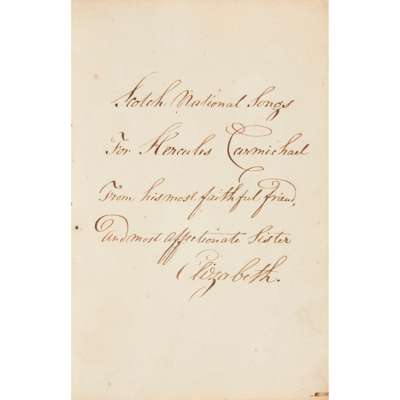 Scotch National Songs
For Hercules Carmichael
From his most faithful friend,
And most affectionate Sister
Elizabeth.